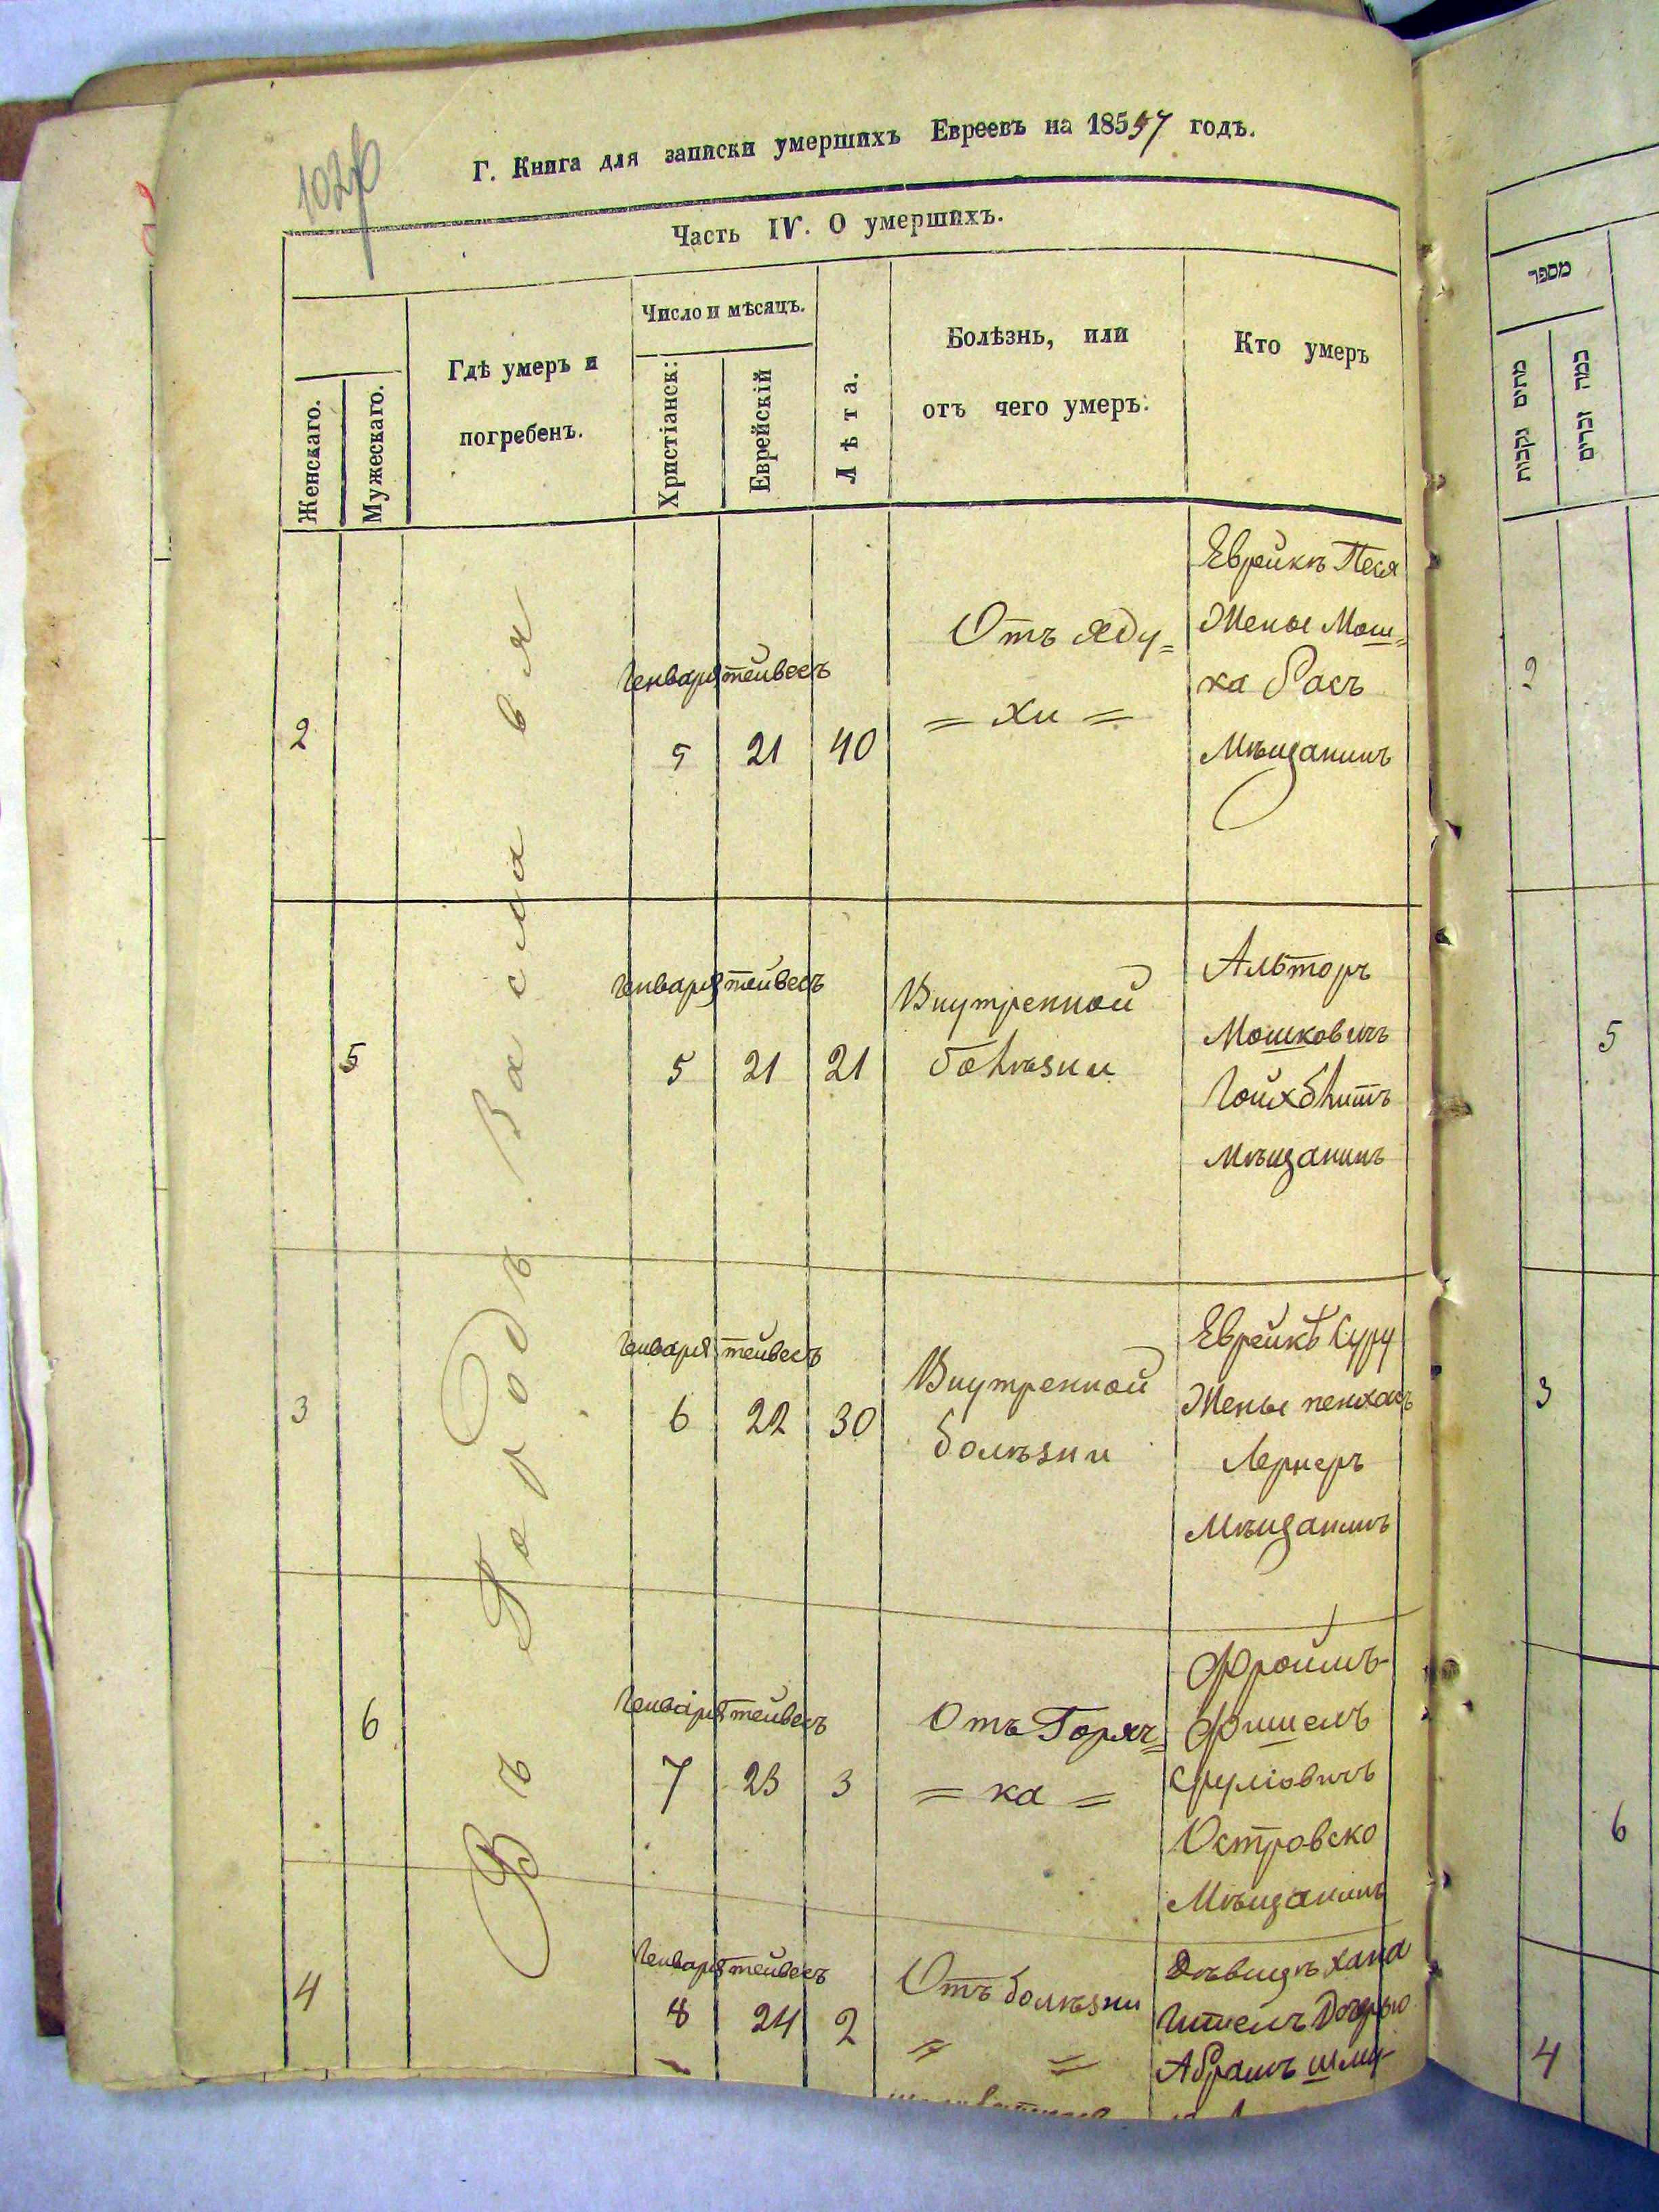 Г. Книга для записки умершихъ Евреевъ на 18557 годъ.
Часть IV. О умершихъ.
Женскаго.
Мужескаго.
Гдѣ умеръ и
погребенъ.
Число и мѣсяцъ.
Христіанск:
Еврейскій
Лѣта.
Болѣзнь, или
отъ чего умеръ.
Кто умеръ
Въ Городѣ Ваславля
2
Генваря тейвесъ
5 21 40
Отъ яду=
= хи =
Еврейкѣ Песя
Жены Мош=
ка Расъ
Мѣщанинъ
5
Генваря тейвесъ
5 21 21
Внутренной
болѣзни
Альторъ
Мошковичъ
Гойхблитъ
Мѣщанинъ
3
Генваря тейвесъ
6 22 30
Внутренной
болѣзни
Еврейкѣ Суру
Жены
Лернеръ
Мѣщанинъ
6
Генваря тейвесъ
7 23 3
Отъ Горяч=
= ка =
Фроимъ
Фишелъ
Сруліовичъ
Островско
Мѣщанинъ
4
Генваря тейвесъ
8 24 2
Отъ болѣзни
" =
Дѣвицѣ хана
Дочерью
Абрамъ шму
מספר
מתים נקבות
כמה זכרים
2
5
3
6
4